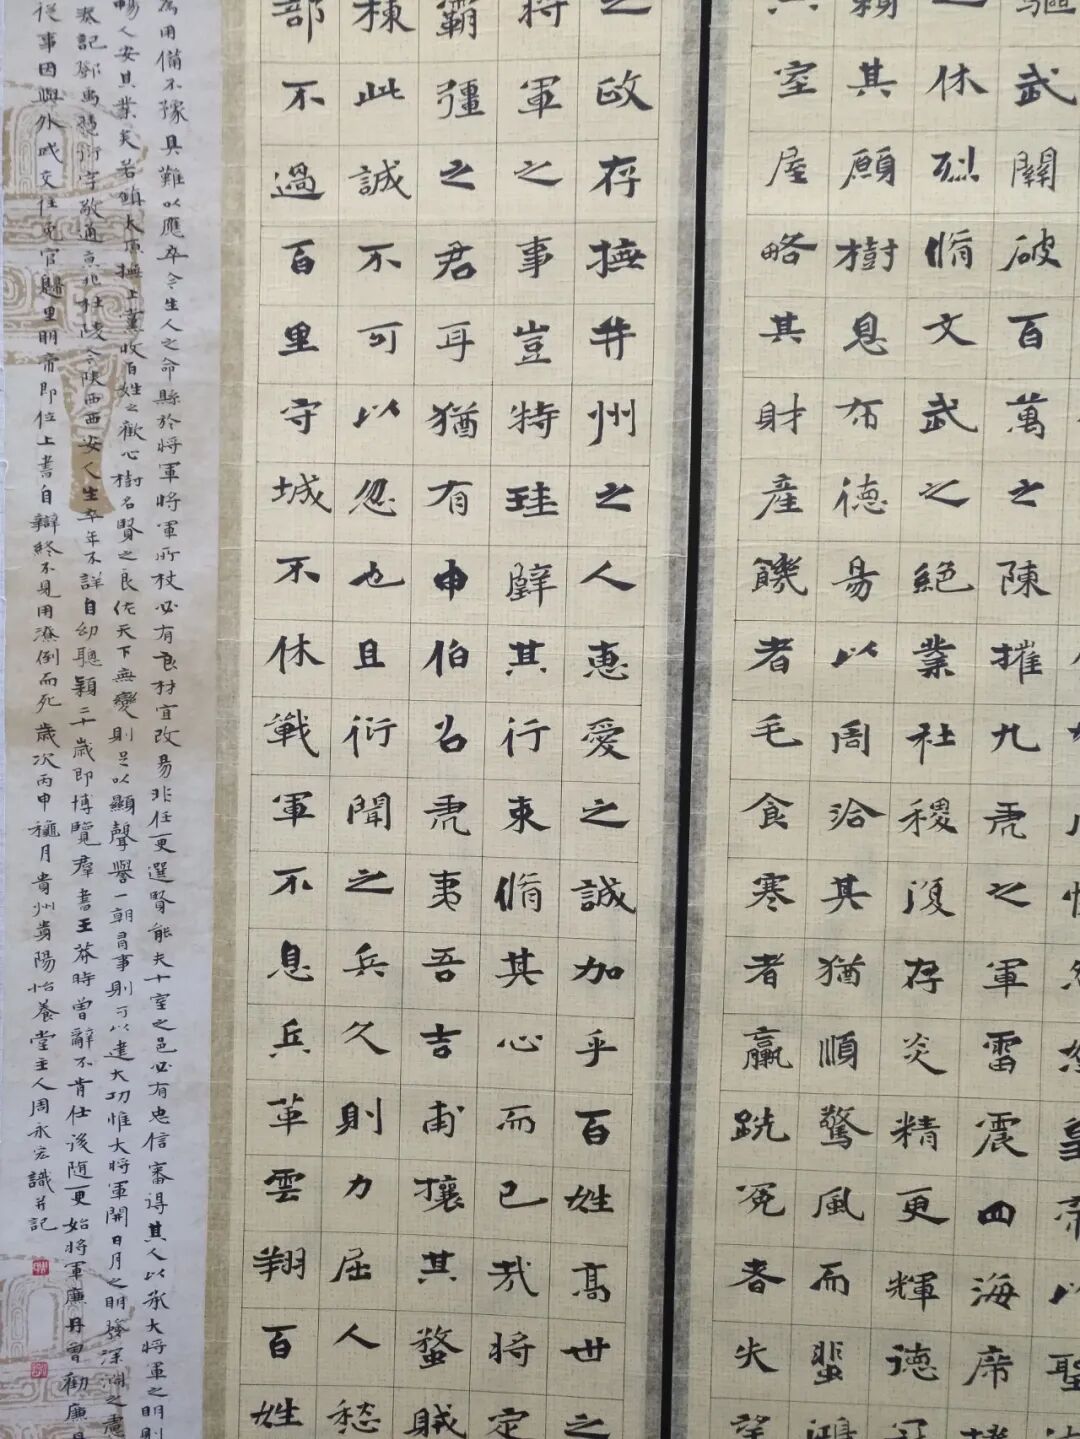 驅武關破百萬之陳摧九虎之軍雷震四海席
之休烈脩文武之絕業社稷復存炎精更輝德冠
賴其願樹恩布德易以周洽其猶順驚風而蜚鴻
室屋略其財產饑者毛食寒者臝跣冤者失望
之政存撫并州之人惠愛之誠加乎百姓高世之
將軍之事豈特珪璧其行束脩其心而已哉將定
霸彊之君耳猶有申伯召虎夷吾吉甫攘其蝥賊
棟此誠不可以忽也且衍聞之兵久則力屈人愁
部不過百里守城不休戰軍不息兵革雲翔百姓
為用備不豫具難以應卒今生人之命縣於將軍將軍所杖必有良材宜改易非任更選賢能夫十室之邑必有忠信審得其人以承大將軍之明則
暢人安其業矣若鎮太原撫上黨收百姓之歡心樹名賢之良佐天下無變則足以顯聲譽一朝有事則可以建大功惟大將軍開日月之明發深淵之慮
記鄧禹馮衍字敬通京兆杜陵今陝西西安人生卒年不詳自幼聰穎二十歲即博覽群書王莽時曾辭不肯仕後隨更始將軍廉丹曾勸廉
從事因與外戚交往免官歸里明帝即位上書自辯終不見用潦倒而死歲次丙申穐月貴州貴陽怡養堂主人周永宏識并記